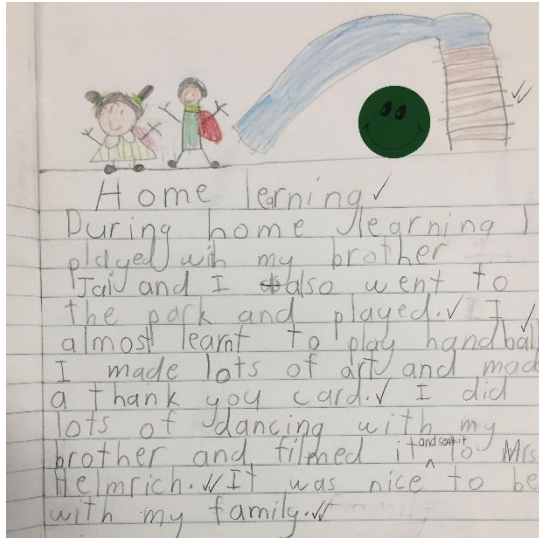 Home lerning
During home learning I
played with my brother
Jai and I also went to
the park and played. I
almost learnt to play handball
I made lots of art and made
a thank you card. I did
lots of dancing with my
brother and filmed it and sent it to Mrs
Helmrich. It was nice to be
with my family.